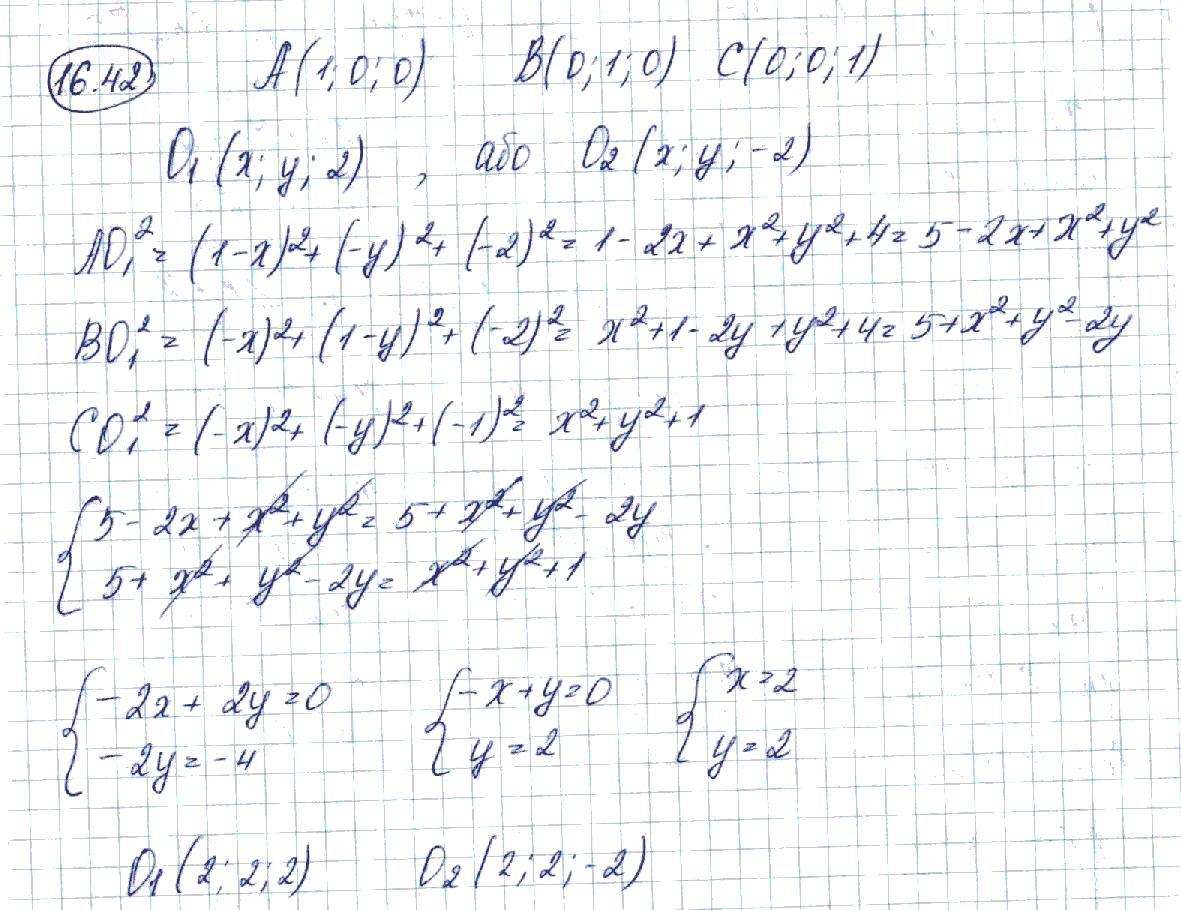 16.42 A(1; 0; 0) B(0; 1; 0) C(0; 0; 1)
O₁(x; y; 2), або O₂(x; y; -2)
AO₁² = (1-x)² + (-y)² + (-2)² = 1 - 2x + x² + y² + 4 = 5 - 2x + x² + y²
BO₁² = (-x)² + (1-y)² + (-2)² = x² + 1 - 2y + y² + 4 = 5 + x² + y² - 2y
CO₁² = (-x)² + (-y)² + (-1)² = x² + y² + 1
{ 5 - 2x + x² + y² = 5 + x² + y² - 2y
5 + x² + y² - 2y = x² + y² + 1
{ -2x + 2y = 0 { -x + y = 0 { x = 2
-2y = -4 y = 2 y = 2
O₁(2; 2; 2) O₂(2; 2; -2)